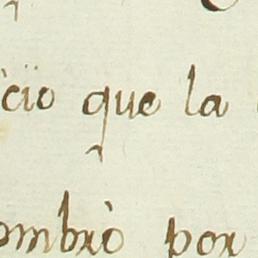 cio que la
ombrò por